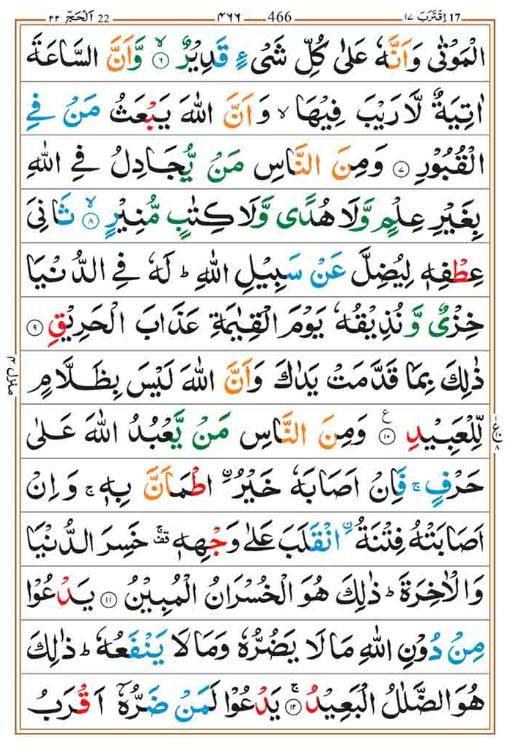 اِقْتَرَبَ ١٧ 17 ٤٦٦ 466 اَلْحَجّ ٢٢ 22
الْمَوْتٰى وَاَنَّهٗ عَلٰى كُلِّ شَىْءٍ قَدِيْرٌ ۙ‏﴿۶﴾ وَّاَنَّ السَّاعَةَ
اٰتِيَةٌ لَّا رَيْبَ فِيْهَا ۙ وَاَنَّ اللّٰهَ يَبْعَثُ مَنْ فِى
الْقُبُوْرِ ﴿۷﴾ وَمِنَ النَّاسِ مَنْ يُّجَادِلُ فِى اللّٰهِ
بِغَيْرِ عِلْمٍ وَّلَا هُدًى وَّلَا كِتٰبٍ مُّنِيْرٍ ۙ‏﴿۸﴾ ثَانِىَ
عِطْفِهٖ لِيُضِلَّ عَنْ سَبِيْلِ اللّٰهِ ؕ لَهٗ فِى الدُّنْيَا
خِزْىٌ وَّنُذِيْقُهٗ يَوْمَ الْقِيٰمَةِ عَذَابَ الْحَرِيْقِ ﴿۹﴾
ذٰلِكَ بِمَا قَدَّمَتْ يَدٰكَ وَاَنَّ اللّٰهَ لَيْسَ بِظَلَّامٍ
لِّلْعَبِيْدِ ﴿۱۰﴾ وَمِنَ النَّاسِ مَنْ يَّعْبُدُ اللّٰهَ عَلٰى
حَرْفٍ ۚ فَاِنْ اَصَابَهٗ خَيْرُ ۨ اطْمَاَنَّ بِهٖ ۚ وَاِنْ
اَصَابَتْهُ فِتْنَةُ ۨ انْقَلَبَ عَلٰى وَجْهِهٖ ۚ خَسِرَ الدُّنْيَا
وَالْاٰخِرَةَ ؕ ذٰلِكَ هُوَ الْخُسْرَانُ الْمُبِيْنُ ﴿۱۱﴾ يَدْعُوْا
مِنْ دُوْنِ اللّٰهِ مَا لَا يَضُرُّهٗ وَمَا لَا يَنْفَعُهٗ ؕ ذٰلِكَ
هُوَ الضَّلٰلُ الْبَعِيْدُ ۚ‏﴿۱۲﴾ يَدْعُوْا لَمَنْ ضَرُّهٗۤ اَقْرَبُ
منزل ٤